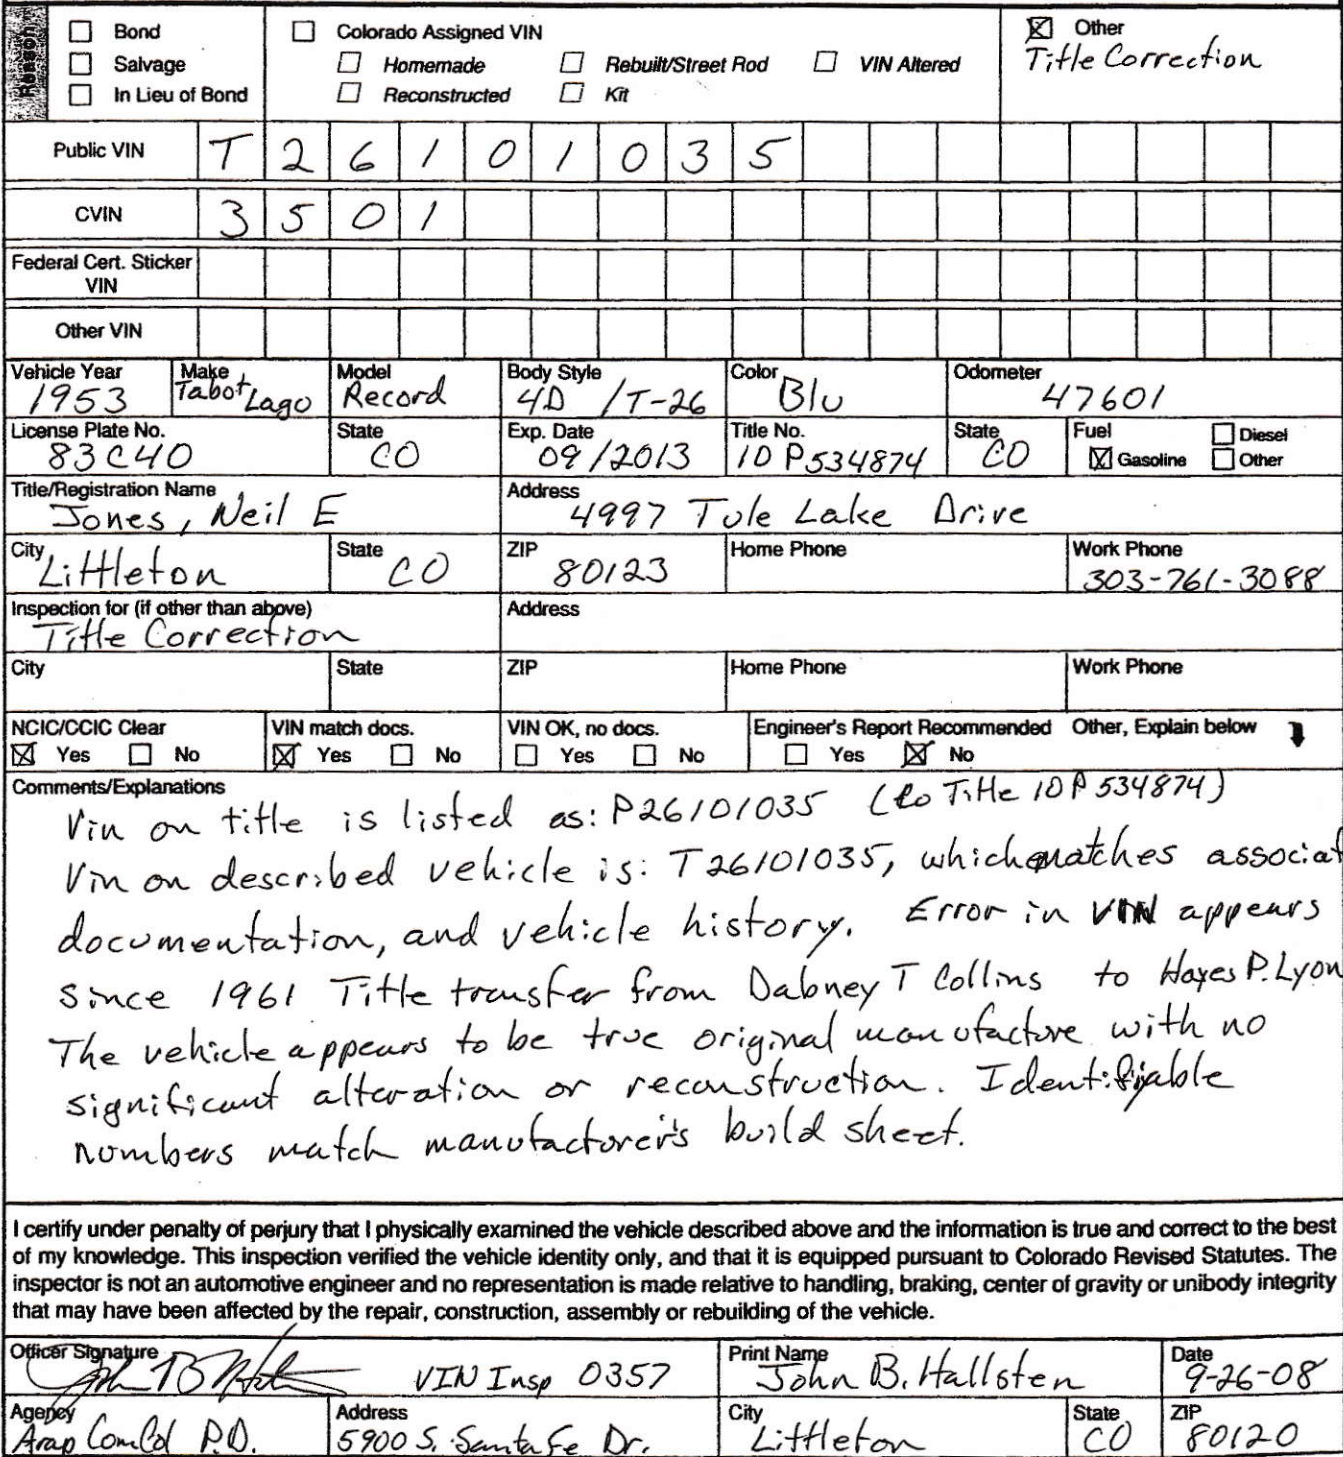 Reason
Bond
Salvage
In Lieu of Bond
Colorado Assigned VIN
Homemade Rebuilt/Street Rod VIN Altered
Reconstructed Kit
Other
Title Correction
Public VIN T 2 6 1 0 1 0 3 5
CVIN 3 5 0 1
Federal Cert. Sticker VIN
Other VIN
Vehicle Year Make Model Body Style Color Odometer
1953 Tabot Lago Record 4D /T-26 Blu 47601
License Plate No. State Exp. Date Title No. State Fuel Diesel
83C40 CO 09/2013 10P534874 CO Gasoline Other
Title/Registration Name Address
Jones, Neil E 4997 Tule Lake Drive
City State ZIP Home Phone Work Phone
Littleton CO 80123 303-761-3088
Inspection for (if other than above) Address
Title Correction
City State ZIP Home Phone Work Phone
NCIC/CCIC Clear VIN match docs. VIN OK, no docs. Engineer's Report Recommended Other, Explain below
Yes No Yes No Yes No Yes No
Comments/Explanations
Vin on title is listed as: P26101035 (Co Title 10P534874)
Vin on described vehicle is: T26101035, which matches associat
documentation, and vehicle history. Error in VIN appears
since 1961 Title transfer from Dabney T Collins to Hayes P. Lyon
The vehicle appears to be true original manufacture with no
significant alteration or reconstruction. Identifiable
numbers match manufactorer's build sheet.
I certify under penalty of perjury that I physically examined the vehicle described above and the information is true and correct to the best
of my knowledge. This inspection verified the vehicle identity only, and that it is equipped pursuant to Colorado Revised Statutes. The
inspector is not an automotive engineer and no representation is made relative to handling, braking, center of gravity or unibody integrity
that may have been affected by the repair, construction, assembly or rebuilding of the vehicle.
Officer Signature Print Name Date
VIN Insp 0357 John B. Hallsten 9-26-08
Agency Address City State ZIP
Arap Com Col P.D. 5900 S. Santa Fe Dr. Littleton CO 80120